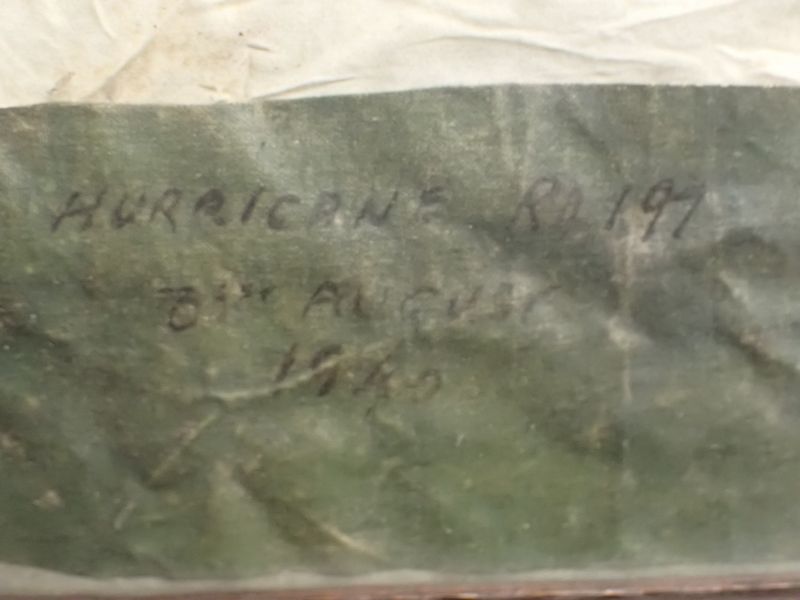 HURRICANE R4197
31ST AUGUST
1940